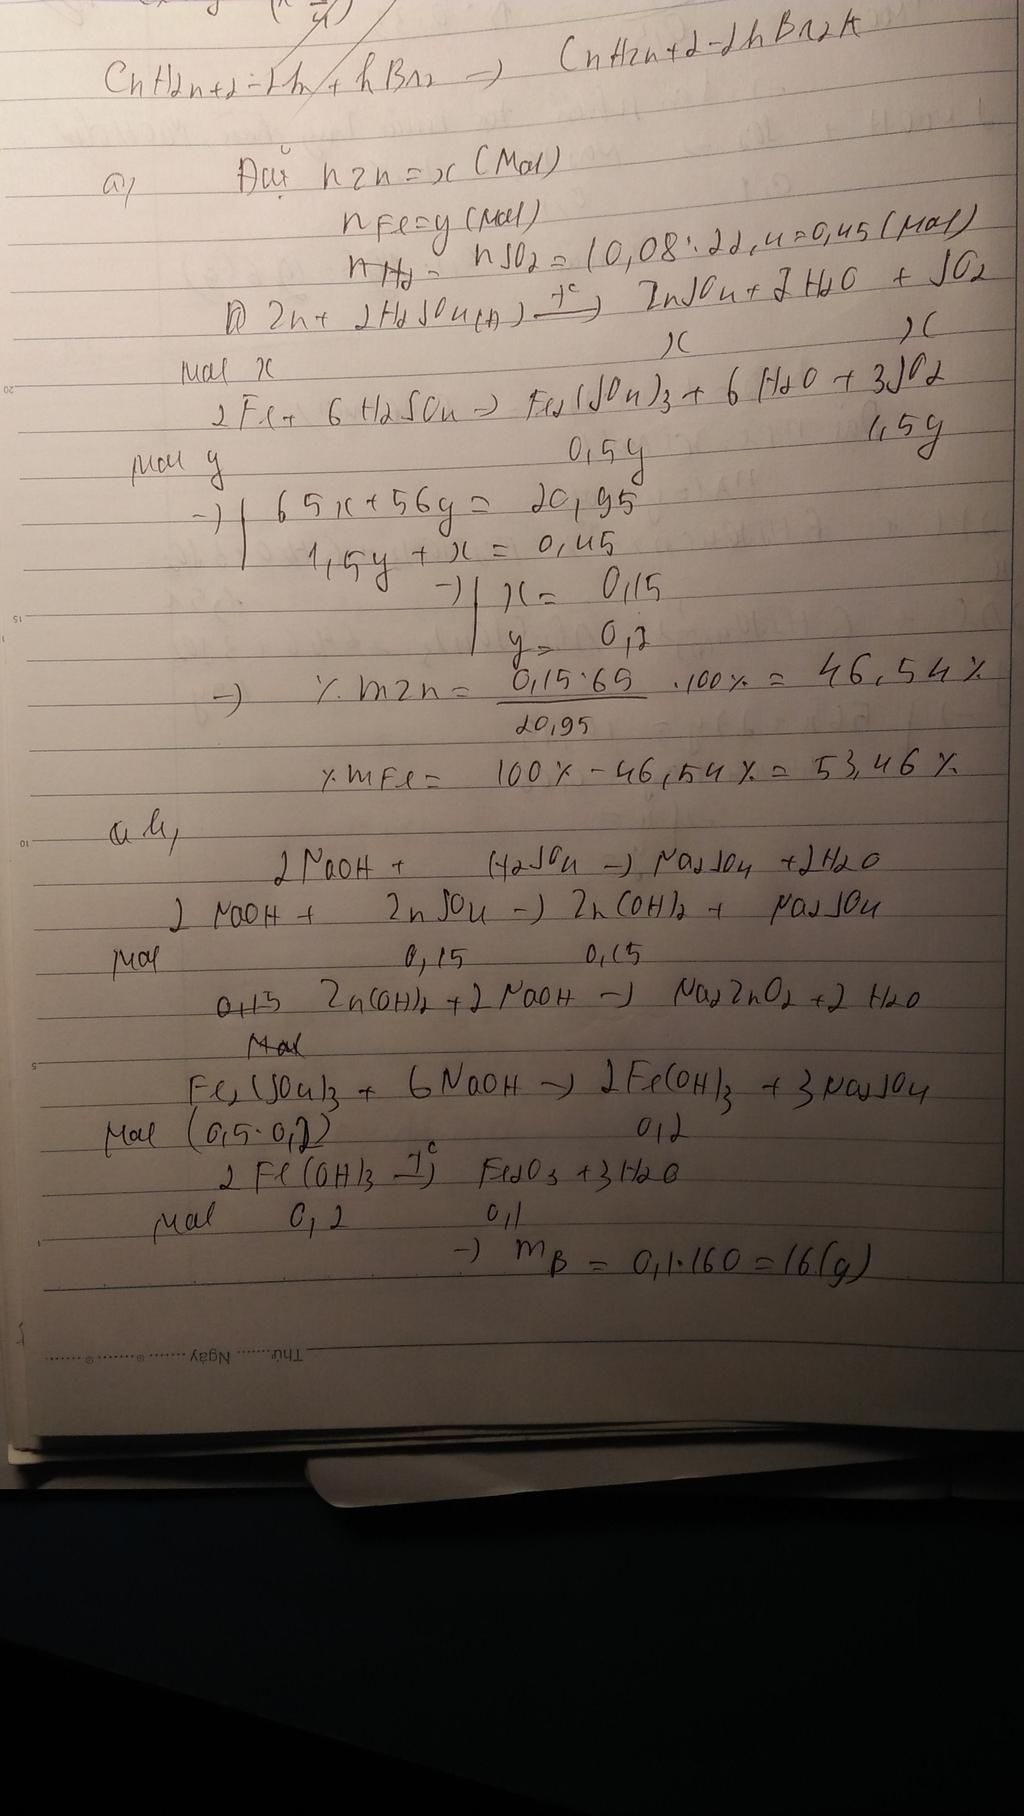 CnH2n+2-2k + kBr2 → CnH2n+2-2kBr2k
a, Đặt nZn = x (mol)
nFe = y (mol)
nSO2 = 10,08 : 22,4 = 0,45 (mol)
Zn + 2H2SO4(đ) t°→ ZnSO4 + 2H2O + SO2
Mol x x x
2Fe + 6H2SO4 → Fe2(SO4)3 + 6H2O + 3SO2
Mol y 0,5y 1,5y
→ 65x + 56y = 20,95
1,5y + x = 0,45
→ x = 0,15
y = 0,2
→ % mZn = 0,15.65 .100% = 46,54%
20,95
% mFe = 100% - 46,54% = 53,46%
b,
2NaOH + H2SO4 → Na2SO4 + 2H2O
2 NaOH + ZnSO4 → Zn(OH)2 + Na2SO4
Mol 0,15 0,15
0,15 Zn(OH)2 + 2NaOH → Na2ZnO2 + 2 H2O
Mol
Fe2(SO4)3 + 6NaOH → 2Fe(OH)3 + 3Na2SO4
Mol (0,5.0,2) 0,2
2Fe(OH)3 t°→ Fe2O3 + 3H2O
Mol 0,2 0,1
→ mB = 0,1.160 = 16(g)
Thứ ....... Ngày